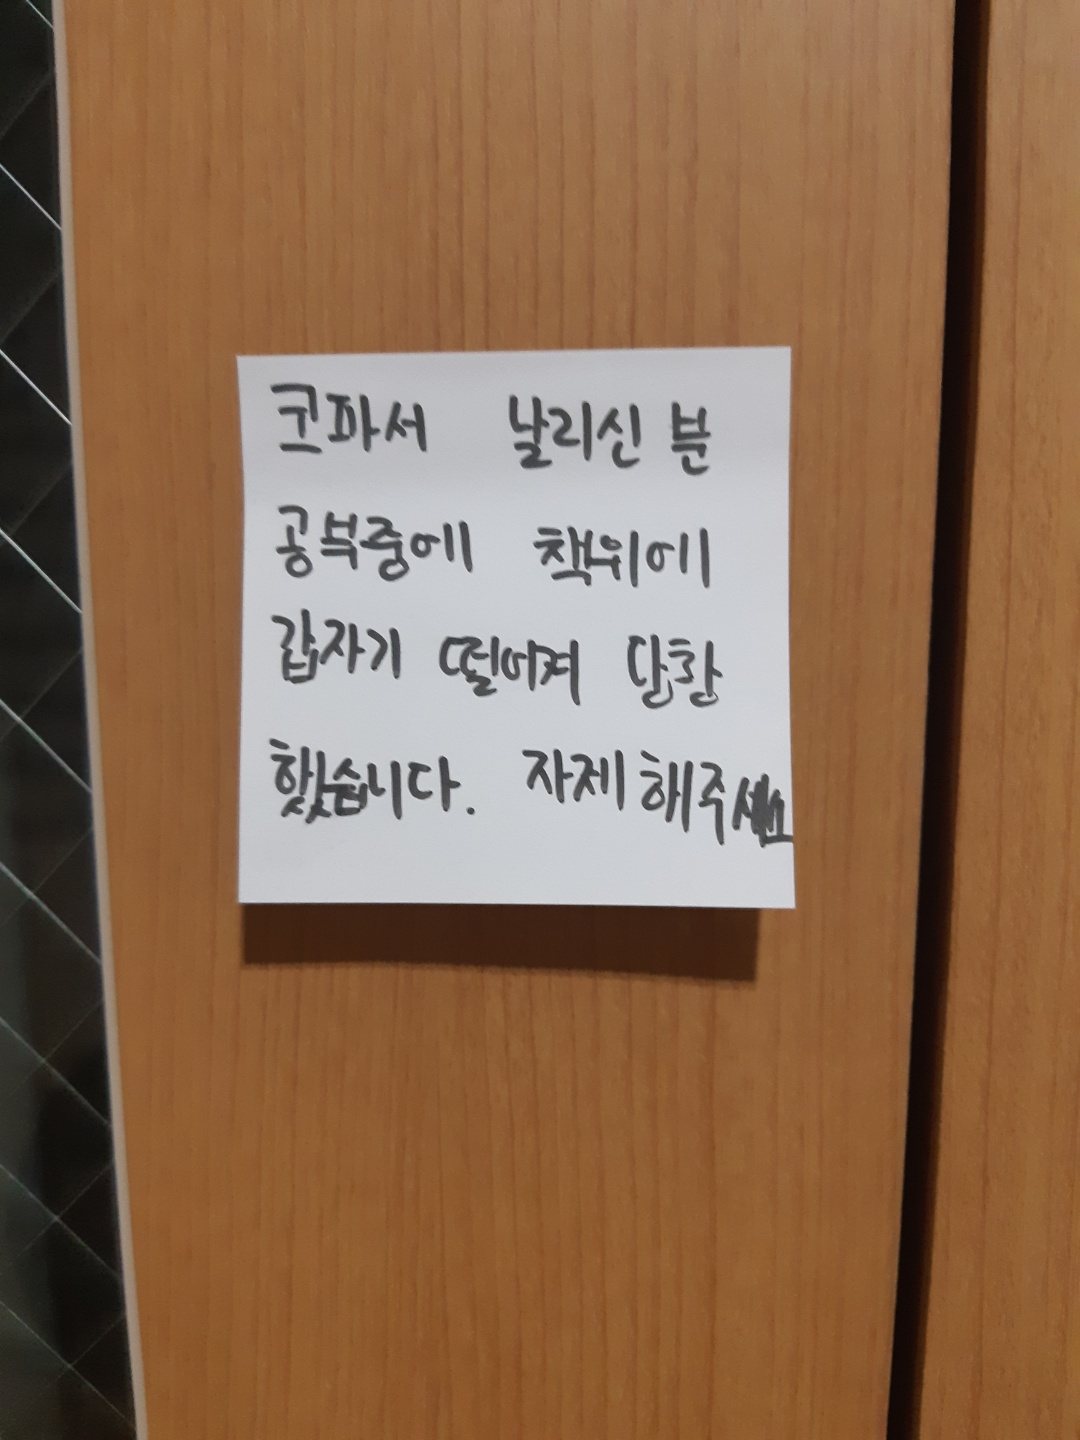 코파서 날리신 분
공부중에 책위에
갑자기 떨어져 당황
했습니다. 자제해주세요